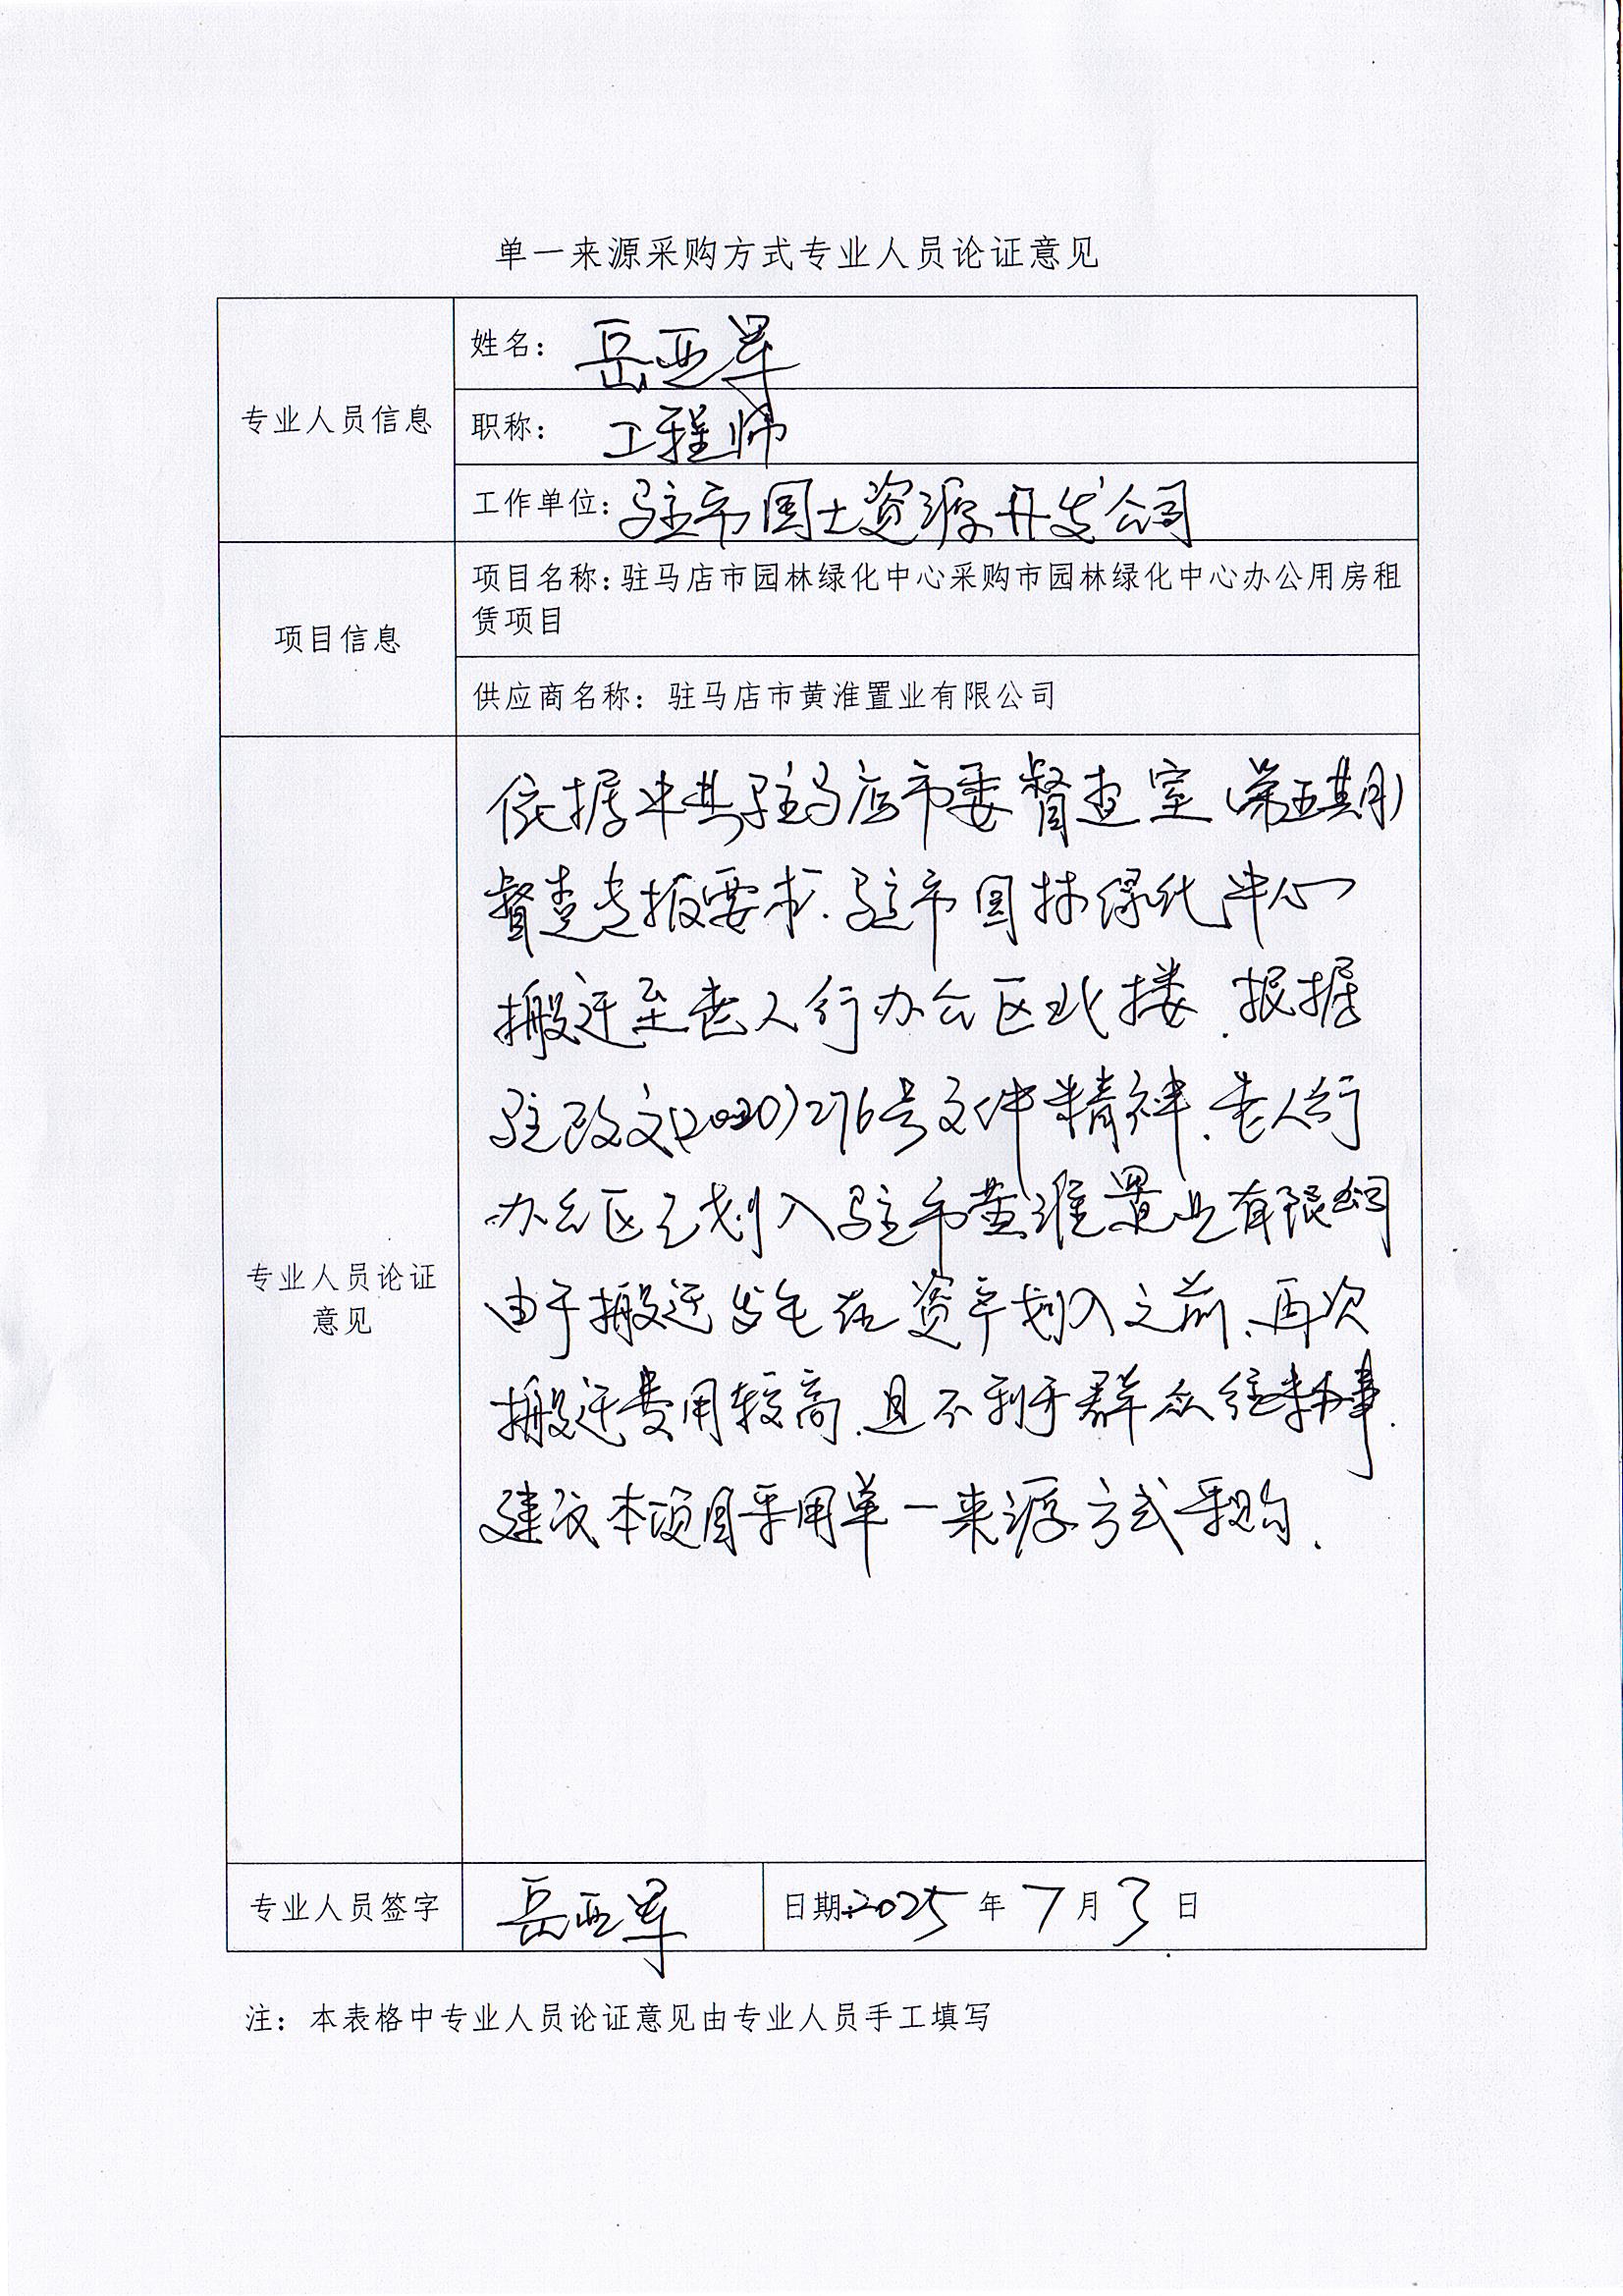 单一来源采购方式专业人员论证意见
专业人员信息
姓名：岳亚军
职称：工程师
工作单位：驻市国土资源开发公司
项目信息
项目名称：驻马店市园林绿化中心采购市园林绿化中心办公用房租
赁项目
供应商名称：驻马店市黄淮置业有限公司
专业人员论证
意见
依据中共驻马店市委督查室（第五期）
督查专报要求、驻市园林绿化中心
搬迁至老人行办公区北楼、根据
驻政文(2020)276号文件精神、老人行
办公区已划入驻市黄淮置业有限公司
由于搬迁发生在资产划入之前、再次
搬迁费用较高、且不利于群众往来办事.
建议本项目采用单一来源方式采购.
专业人员签字
岳亚军
日期:2025年7月3日
注：本表格中专业人员论证意见由专业人员手工填写